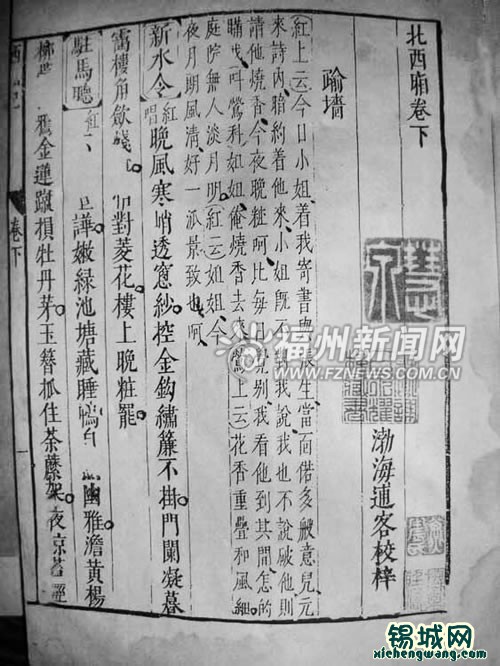 北西廂卷下
渤海逋客校梓
踰墻
紅上云今日小姐着我寄書與張生當面偌多般意兒元
來詩內暗約着他來小姐既不對我說我也不說破他則
請他燒香今夜晚粧呵比每日覺別我看他到其間怎的
瞞我叫鶯科姐姐俺燒香去來鶯上云花香重疊和風細
庭院無人淡月明紅云姐姐今
夜月朗風清好一派景致也呵
新水令 紅唱 晚風寒峭透窻紗控金鈎繡簾不掛門闌凝暮
靄樓角歛殘 對菱花樓上晚粧罷
駐馬聽 紅 譁嫩綠池塘藏睡鴨自 幽雅澹黃楊
柳 金蓮蹴損牡丹芽玉簪抓住荼蘼架夜凉苔徑
卷下
一
福州新闻网
WWW.FZNEWS.COM.CN
锡城网
xichengwang.com